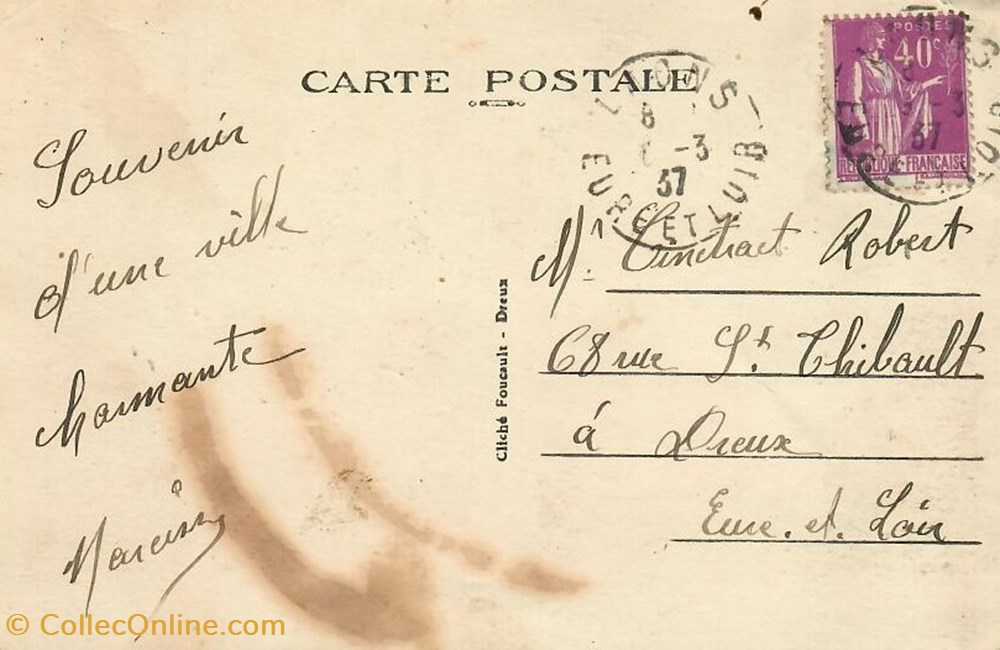 CARTE POSTALE
Souvenir
d'une ville
charmante
Cliché Foucault - Dreux
POSTES
40c
REPUBLIQUE FRANÇAISE
8
-3
37
EURE ET LOIR
-3
37
Mr Robert
68 rue St Thibault
à Dreux
Eure. et. Loir
© CollecOnline.com